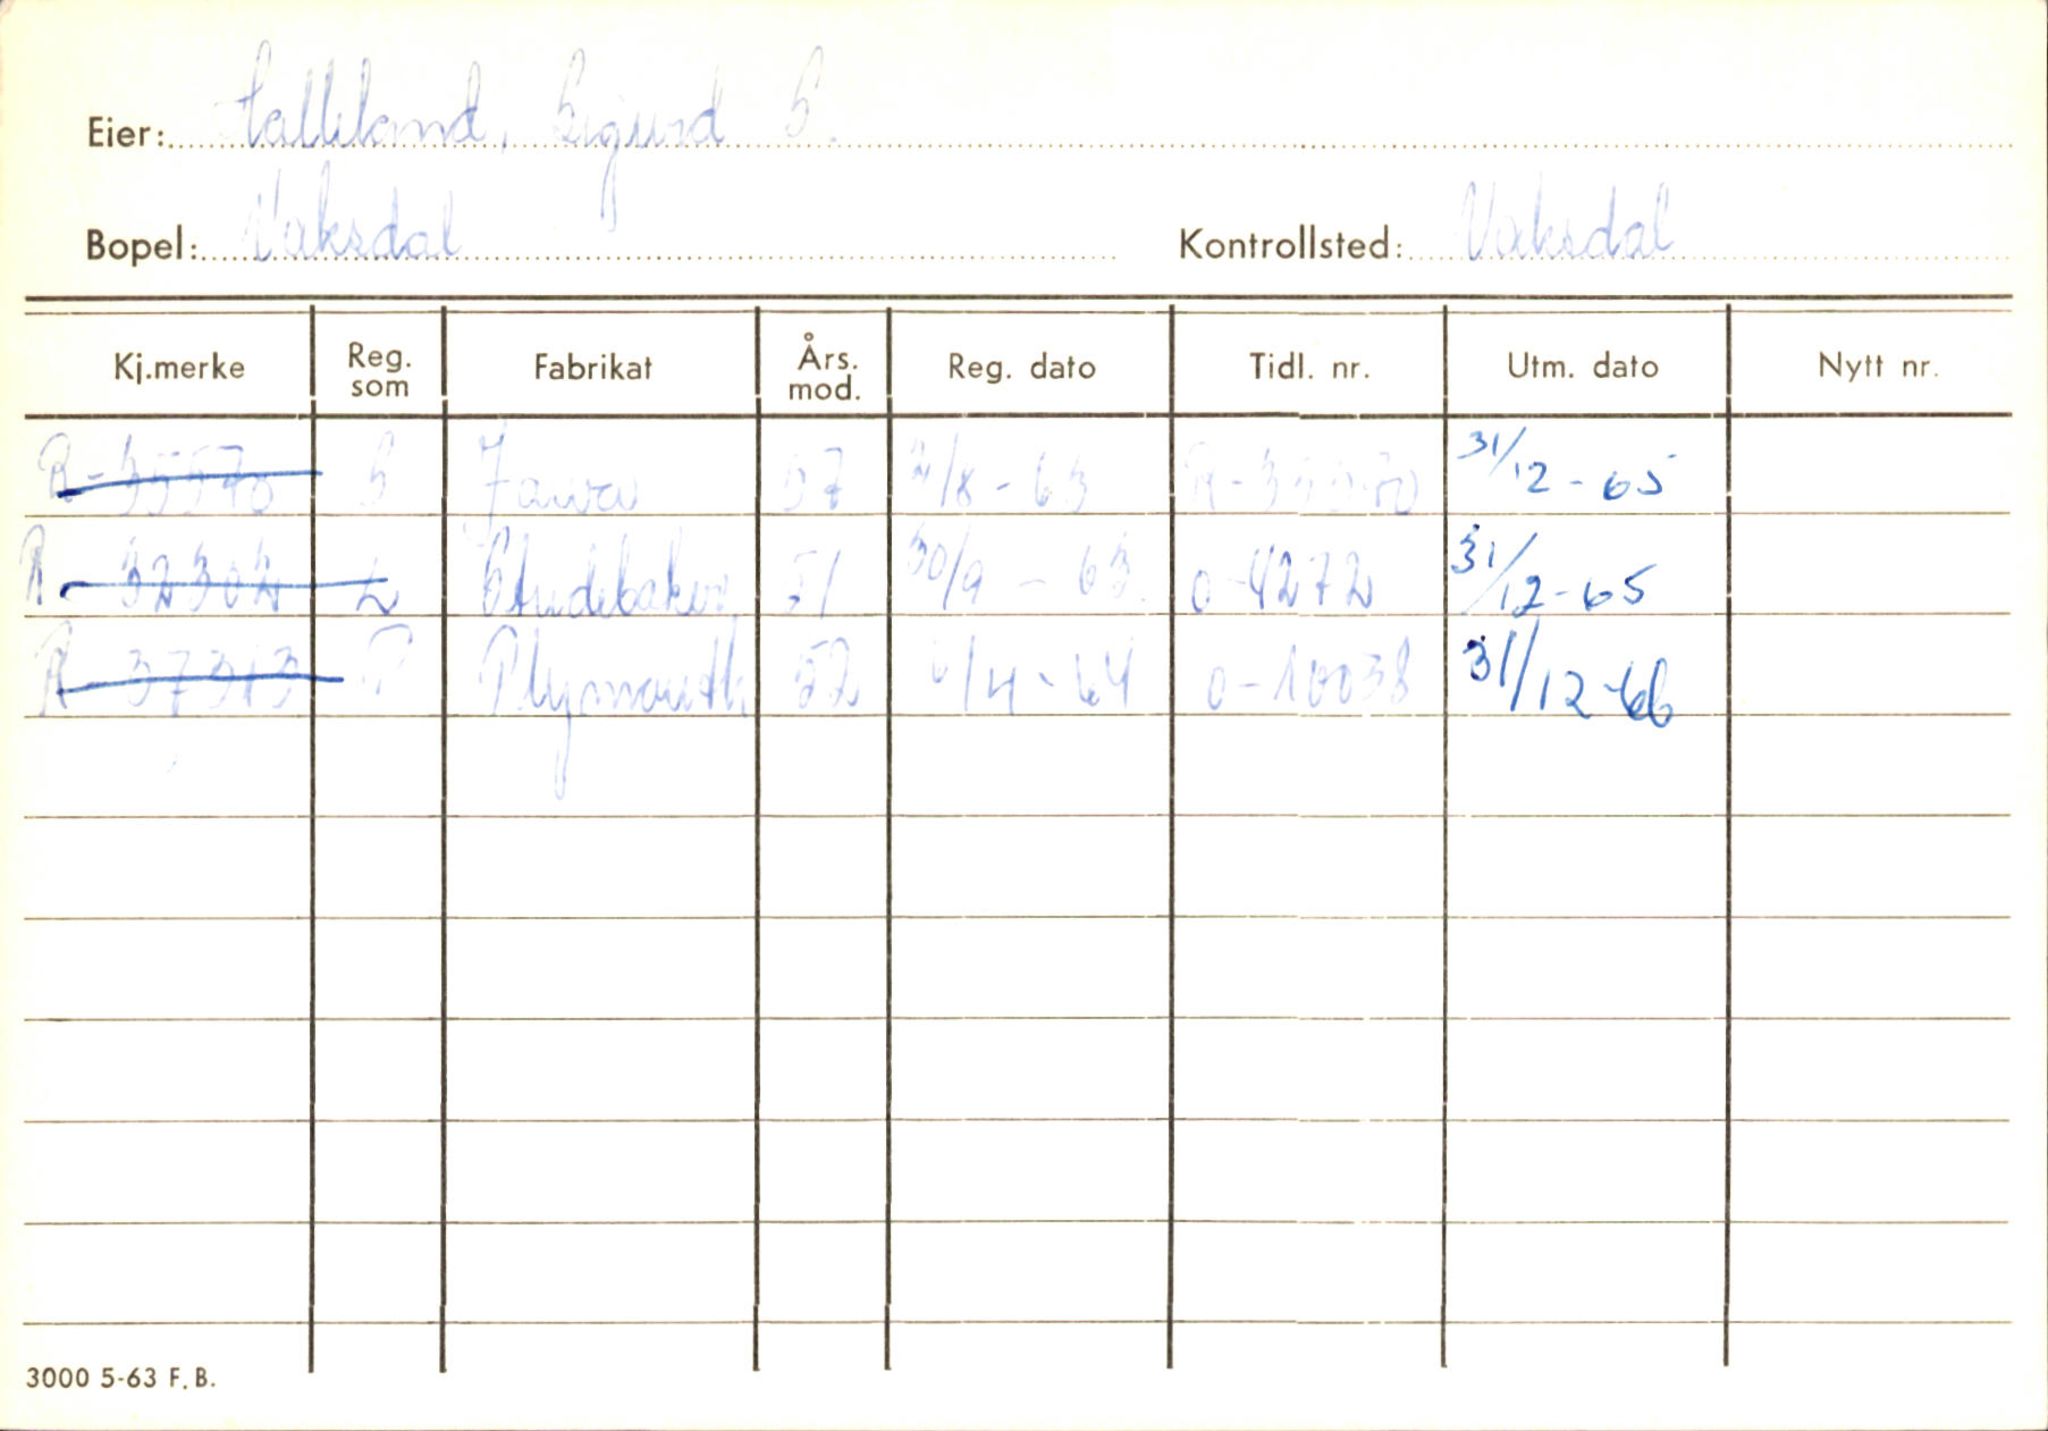 Eier: Salleland, Sigurd S.
Bopel: Vaksdal Kontrollsted: Vaksdal
Kj.merke Reg. som Fabrikat Års. mod. Reg. dato Tidl. nr. Utm. dato Nytt nr.
R-35570 S Jawa 57 2/8-63 R-35570 31/12-65
R-32302 L Studebaker 51 30/9-63 O-4272 31/12-65
R-37313 P Plymouth 52 6/4-64 O-10038 31/12-66
3000 5-63 F.B.